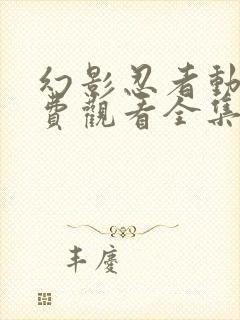 幻影忍者動
費觀看全集
丰慶